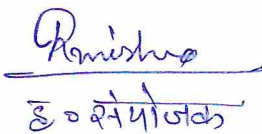 RMishra
ह० संयोजक